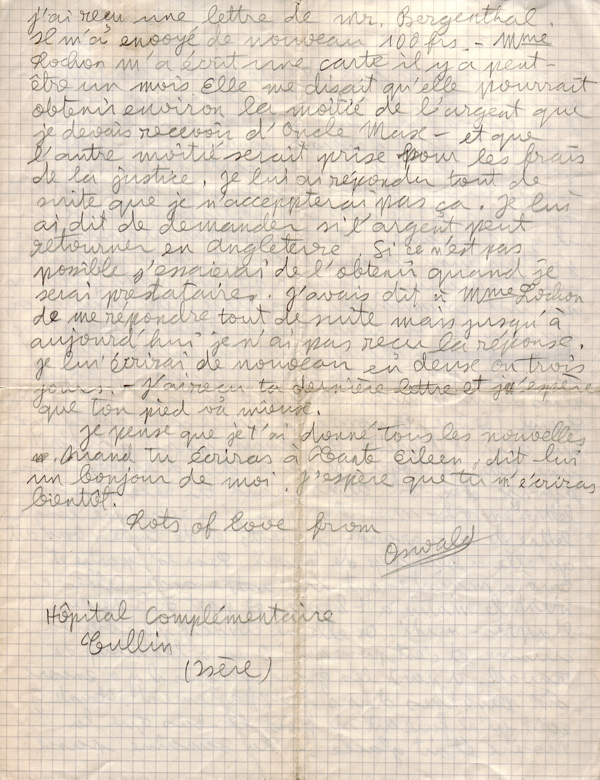 j'ai reçu une lettre de Mr. Bergenthal.
Il m'a envoyé de nouveau 100 frs. - Mme
Lochon m'a écrit une carte il y a peut-
être un mois. Elle me disait qu'elle pourrait
obtenir environ la moitié de l'argent que
je devais recevoir d'Oncle Max - et que
l'autre moitié serait prise pour les frais
de la justice. Je lui ai répondu tout de
suite que je n'accepterai pas ça. Je lui
ai dit de demander si l'argent peut
retourner en Angleterre Si ce n'est pas
possible j'essaierai de l'obtenir quand je
serai prestataire. J'avais dit à Mme Lochon
de me répondre tout de suite mais jusqu'à
aujourd'hui je n'ai pas reçu la réponse.
je lui écrirai de nouveau en deux ou trois
jours. - J'ai reçu ta dernière lettre et j'espère
que ton pied va mieux.
je pense que je t'ai donné tous les nouvelles
. Quand tu écriras à Tante Eileen, dit lui
un bonjour de moi. J'espère que tu m'écriras
bientôt.
Lots of love from
Oswald
Hôpital Complémentaire
Tullin
(Isère)